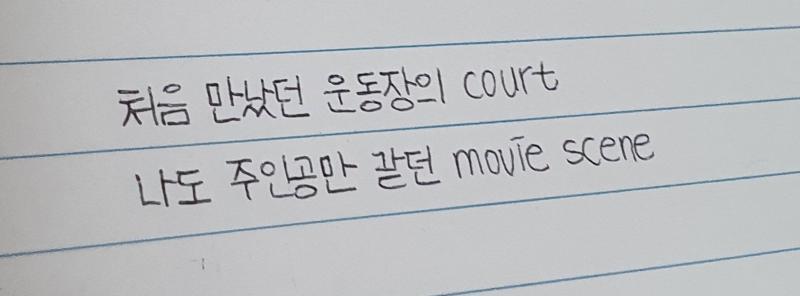 처음 만났던 운동장의 court
나도 주인공만 같던 movie scene